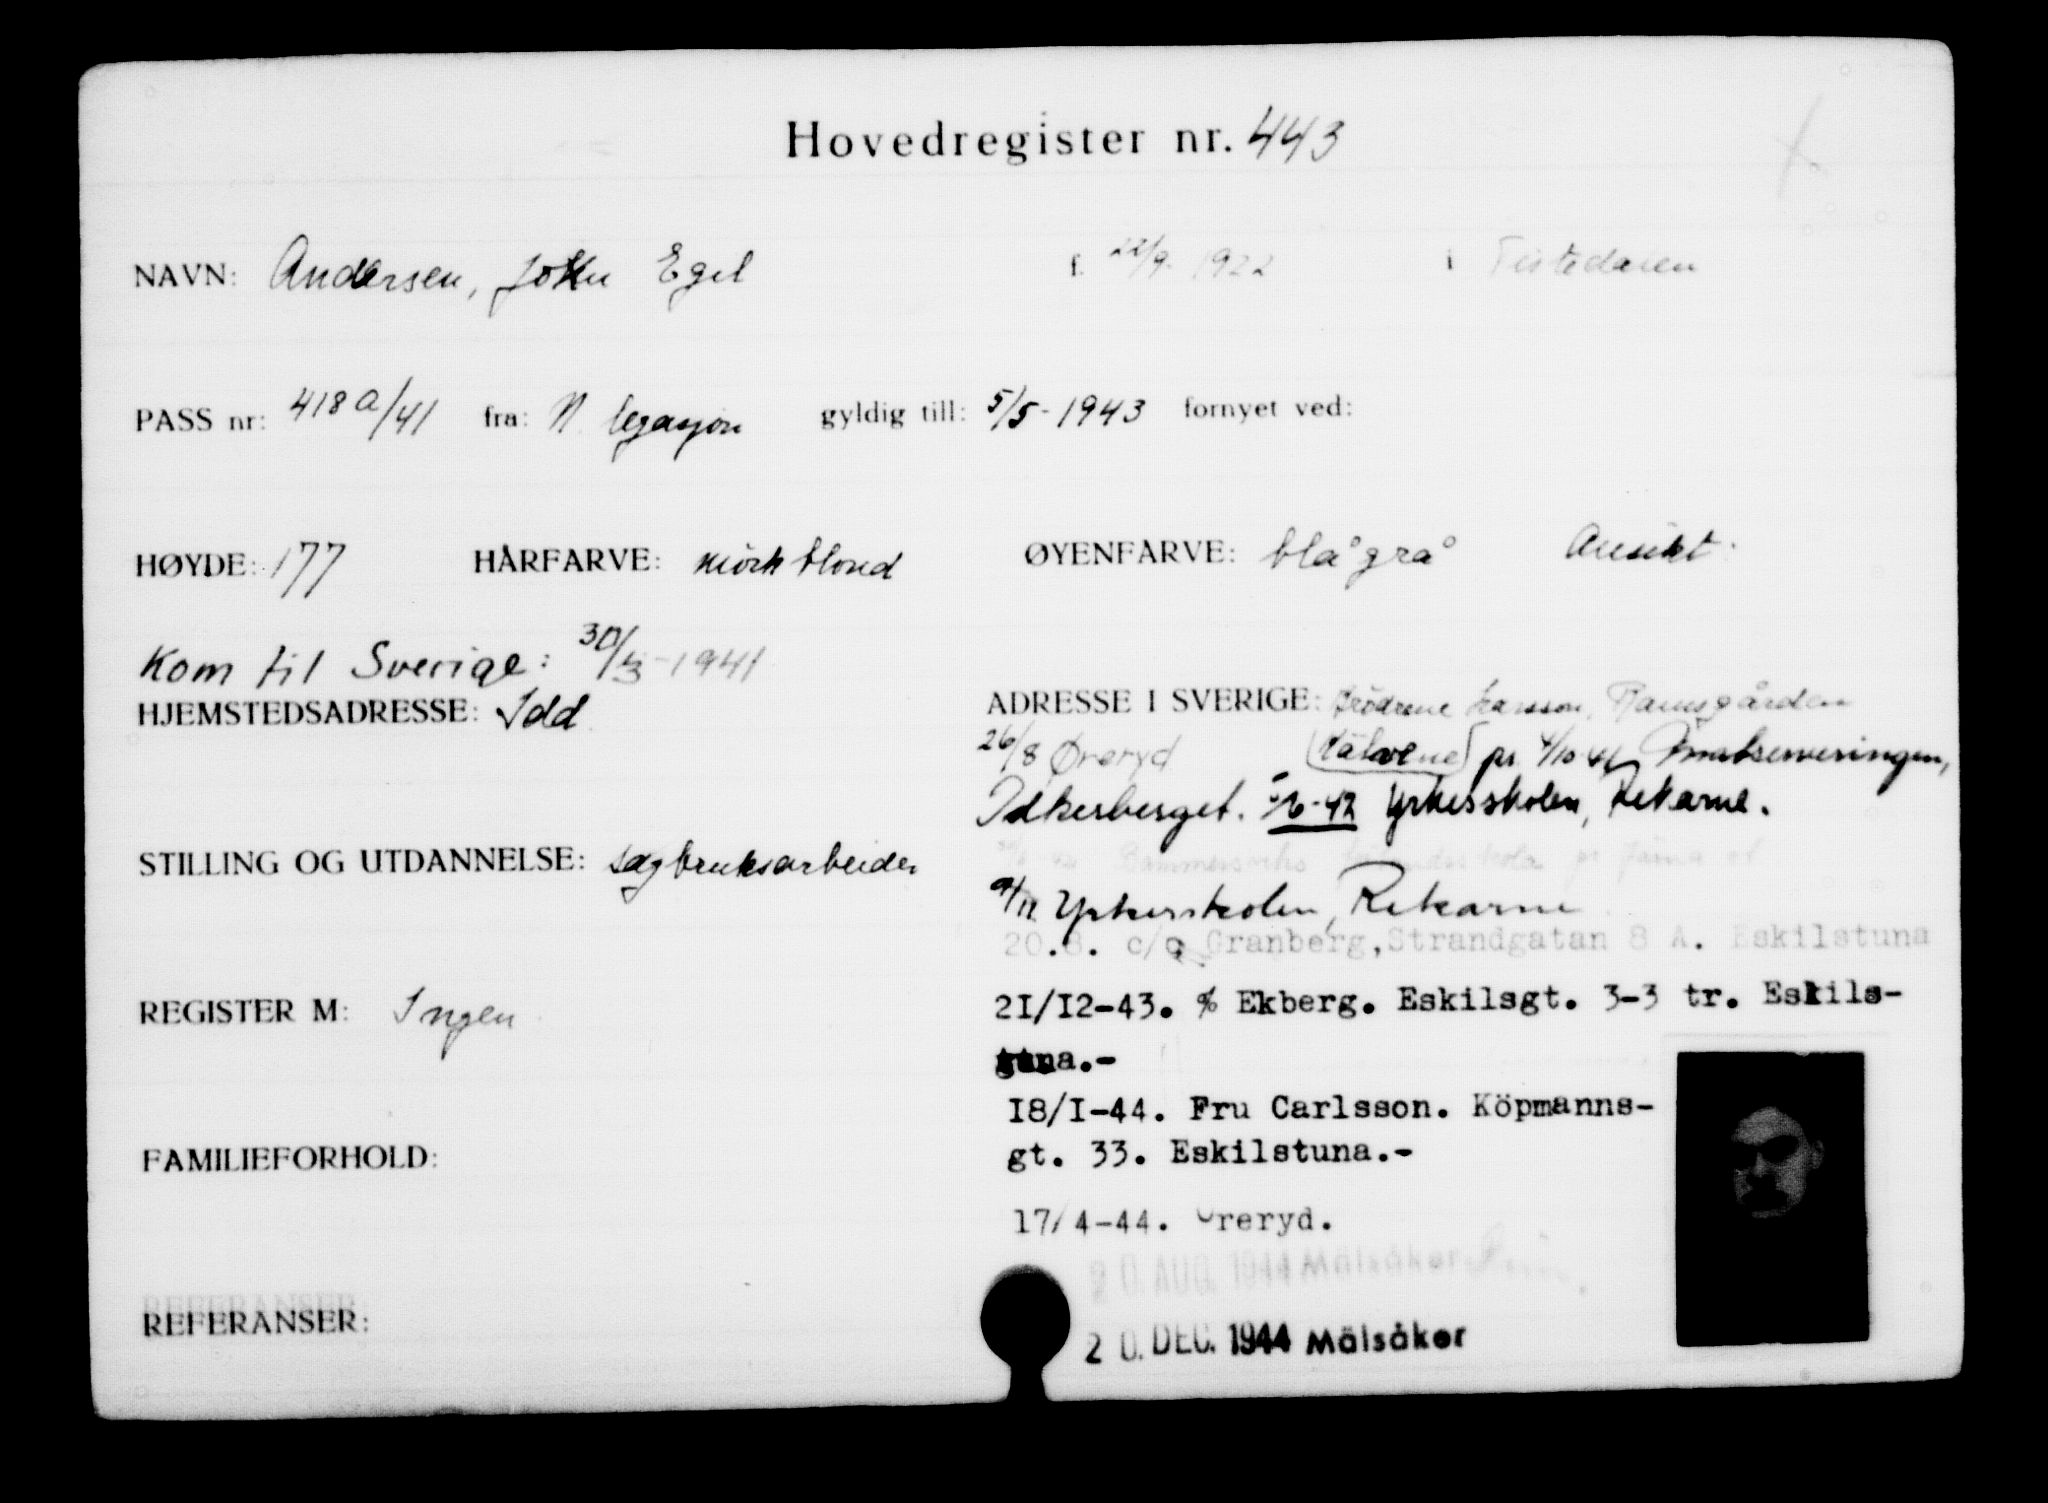 Hovedregister nr. 443
NAVN: Andersen, John Egil f. 22/9. 1922 i Tistedaren
PASS nr: 418 a/41 fra: N. legasjon gyldig till: 5/5-1943 fornyet ved:
HØYDE: 177 HÅRFARVE: mörk blond ØYENFARVE: blå grå Ansikt:
Kom til Sverige: 30/3-1941
HJEMSTEDSADRESSE: Idd ADRESSE I SVERIGE: Brödrene Larsson, Ramsgården
26/8 Øreryd pr. 4/10 41
Idkerberget. 5/6-42 Yrkesskolen, Rekarne.
STILLING OG UTDANNELSE: sagbruksarbeider
9/11 Yrkesskolen, Rekarne
20.8. c/o Granberg, Strandgatan 8 A. Eskilstuna
REGISTER M: Ingen
21/12-43. % Ekberg. Eskilsgt. 3-3 tr. Eskils-
tuna.-
18/1-44. Fru Carlsson. Köpmanns-
gt. 33. Eskilstuna.-
FAMILIEFORHOLD:
17/4-44. Øreryd.
20. AUG. 1944 Mälsåker
REFERANSER:
20. DEC. 1944 Mälsåker